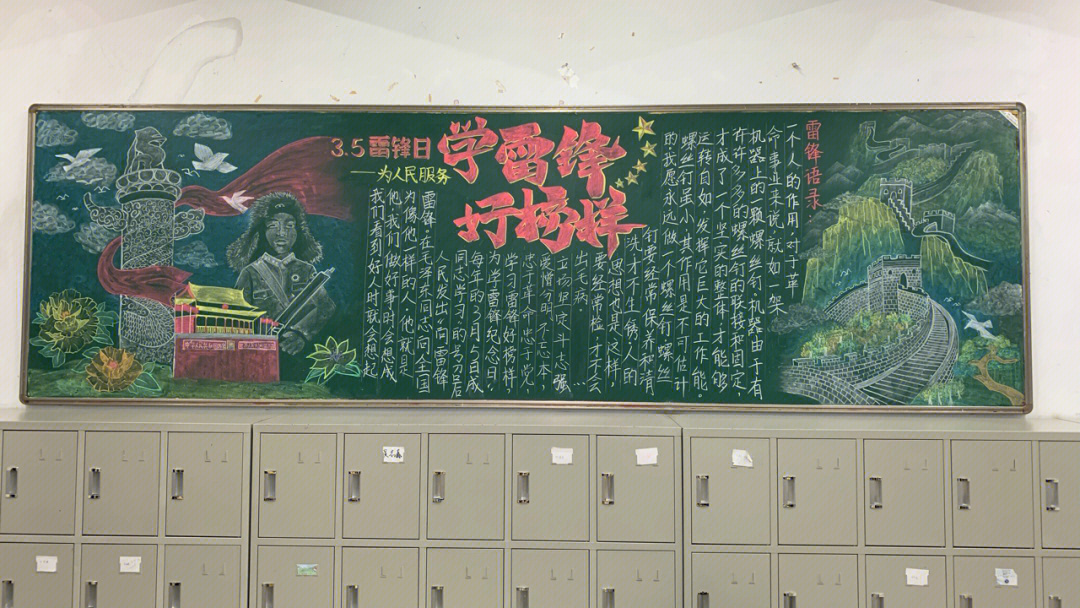 3.5雷锋日
——为人民服务
学雷锋
好榜样
我们看到好人时就会想起
他,我们做好事时会想成
为像他一样的人,他就是
雷锋,在毛泽东同志向全国
人民发出"向雷锋
同志学习"的号召
每年的3月5日成
为学雷锋纪念日,
学习雷锋好榜样,
忠于革命忠于党,
爱憎分明不忘本,
立场坚定斗志强…
雷锋语录:
一个人的作用,对于革
命事业来说,就如一架
机器上的一颗螺丝钉。机器由于有
许许多多的螺丝钉的联接和固定,
才成了一个坚实的整体,才能够
运转自如,发挥它巨大的工作能。
螺丝钉虽小,其作用是不可估计
的。我愿永远做一个螺丝钉。螺丝
钉要经常保养和清
洗,才不生锈。人的
思想也是这样,
要经常检,才不会
出毛病。